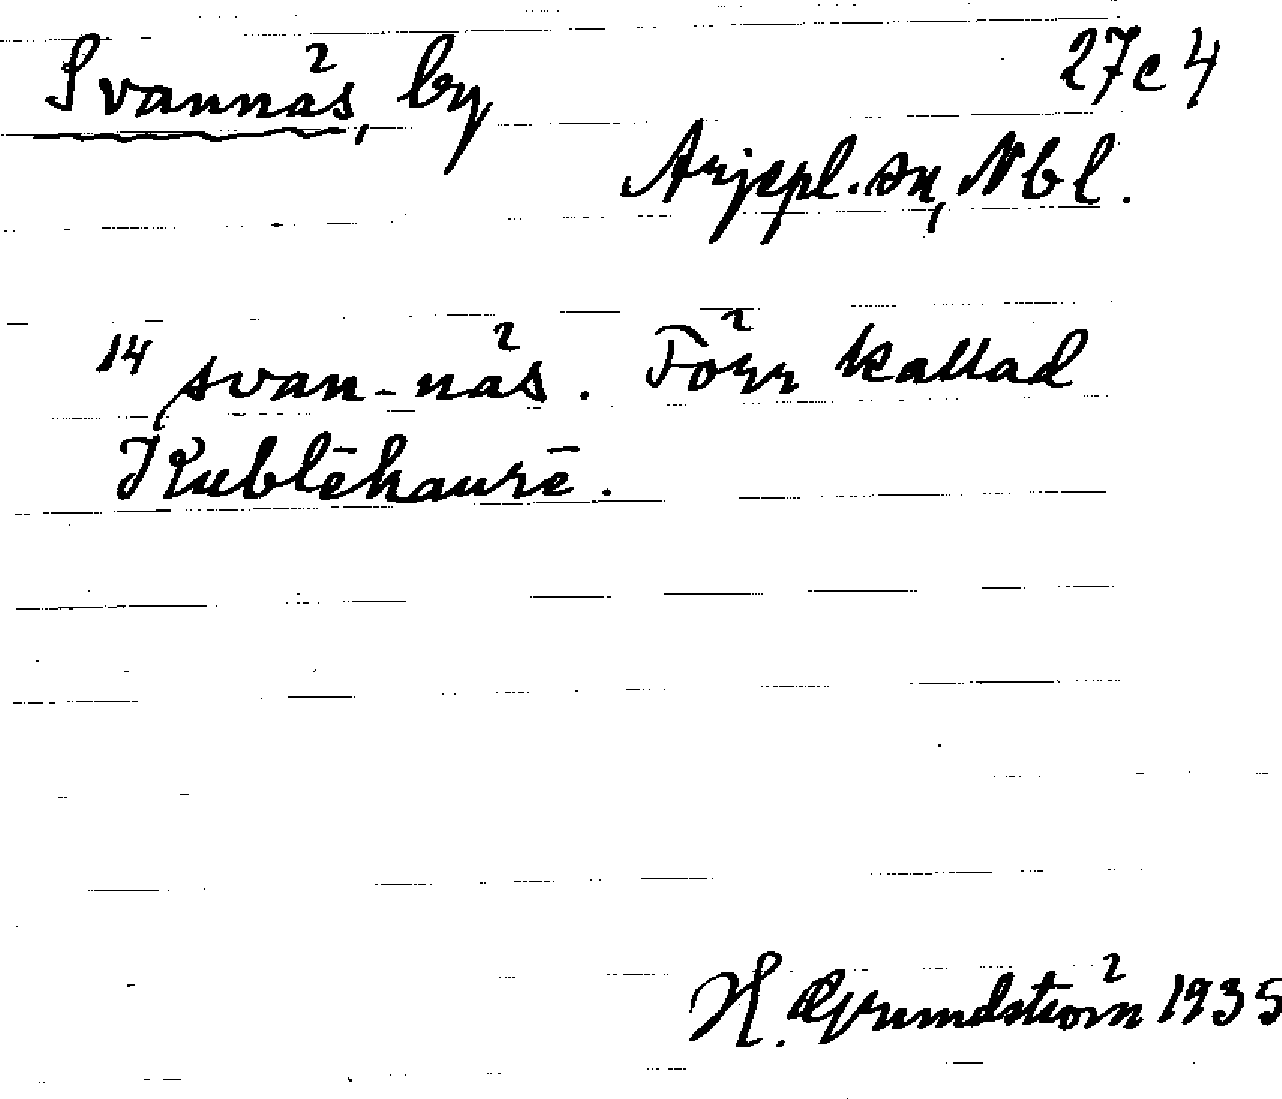 Svannäs, by
27c4
Arjepl. sn, Nbl.
14 svan-näs. Förr kallad
Kublēhaurē.
H. Grundström 1935